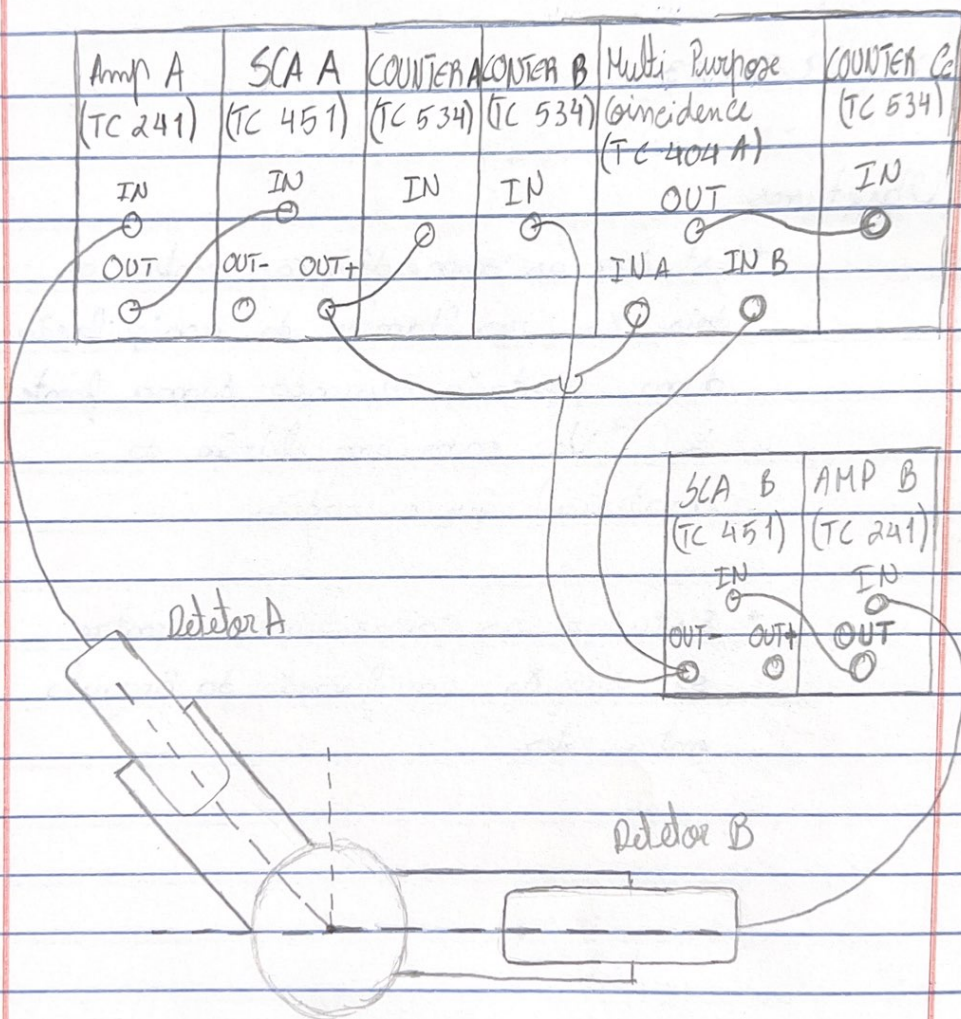 Amp A
(TC 241)
IN
OUT
SCA A
(TC 451)
IN
OUT- OUT+
COUNTER A
(TC 534)
IN
CONTER B
(TC 534)
IN
Multi Purpose
Coincidence
(TC 404 A)
OUT
IN A IN B
COUNTER Cc
(TC 534)
IN
SCA B
(TC 451)
IN
OUT- OUT+
AMP B
(TC 241)
IN
OUT
Detetor A
Detetor B